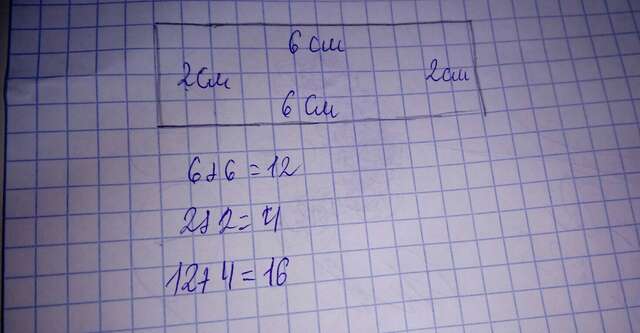 6 см
2 см 2 см
6 см
6+6=12
2+2=4
12+4=16